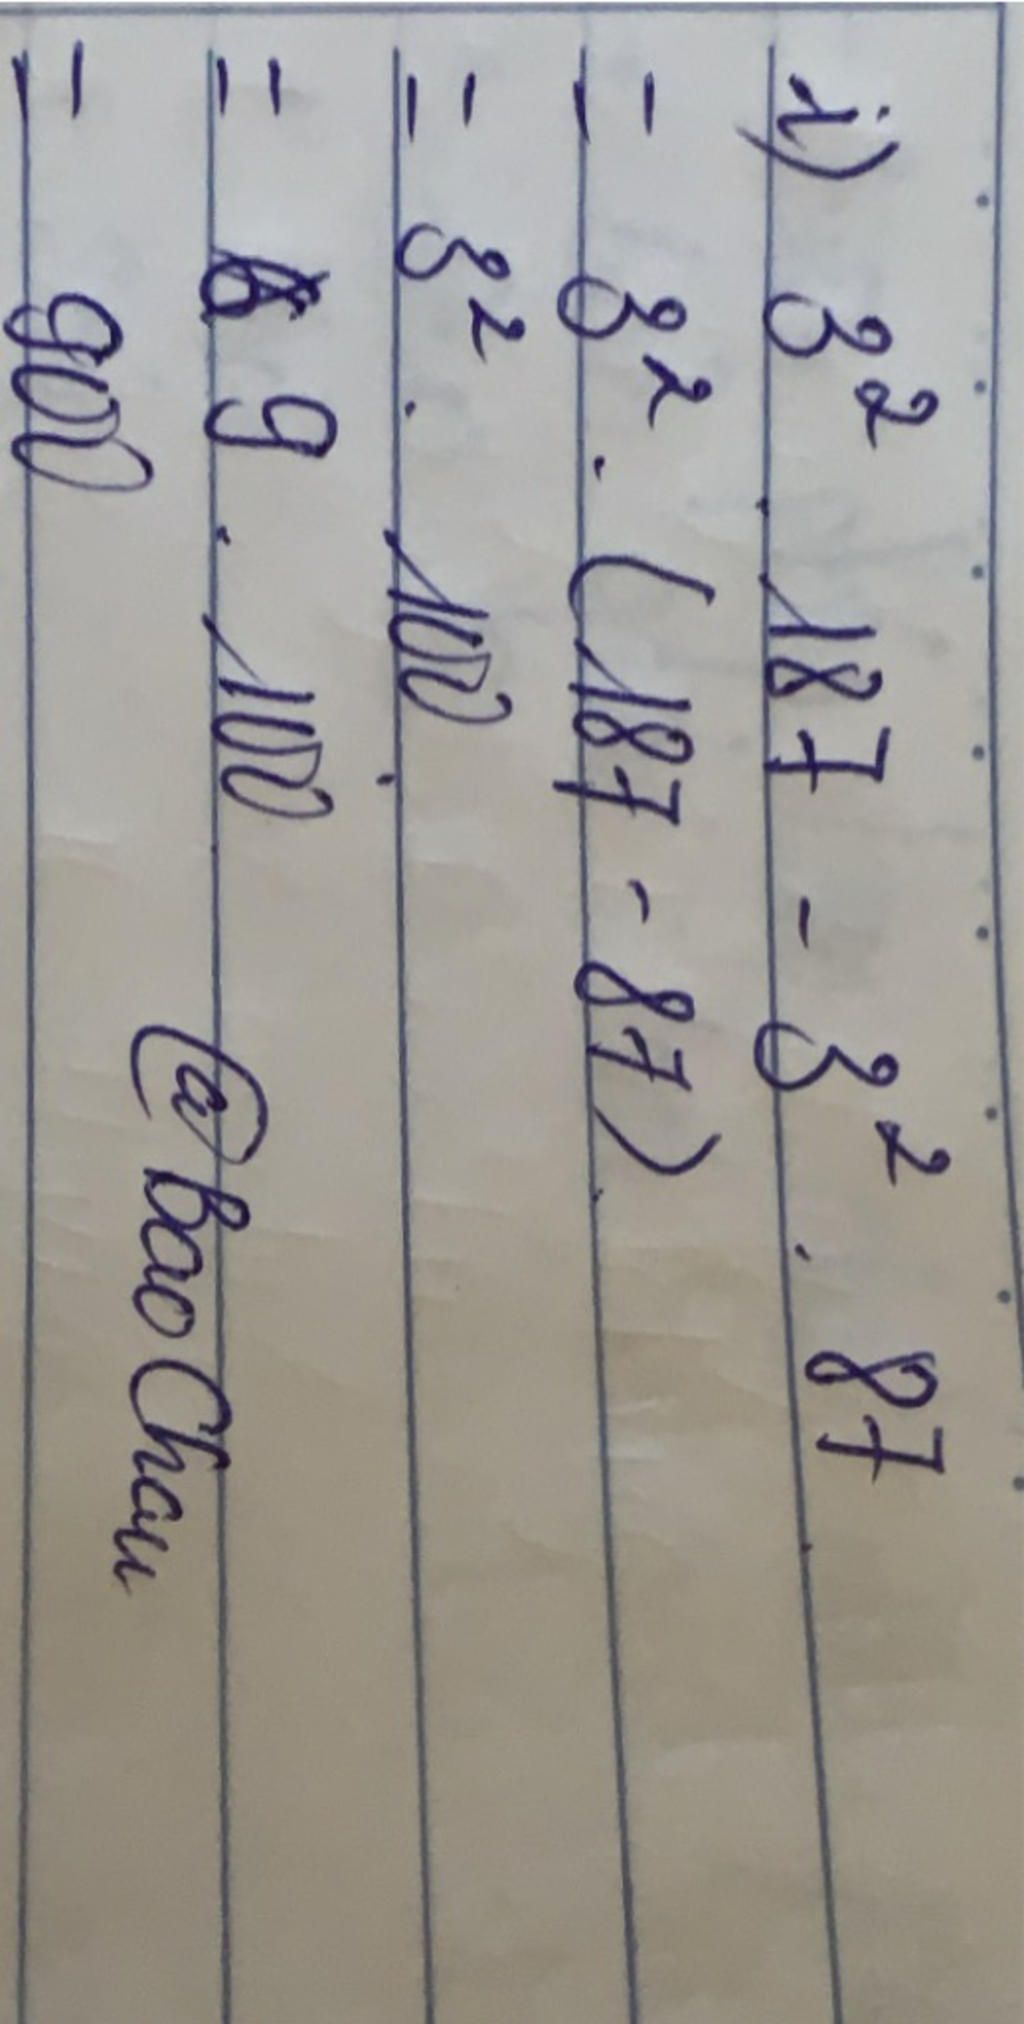 i) 3² . 187 - 3² . 87
= 3² . (187 - 87)
= 3² . 100
= 9 . 100
= 900
@BaoChau